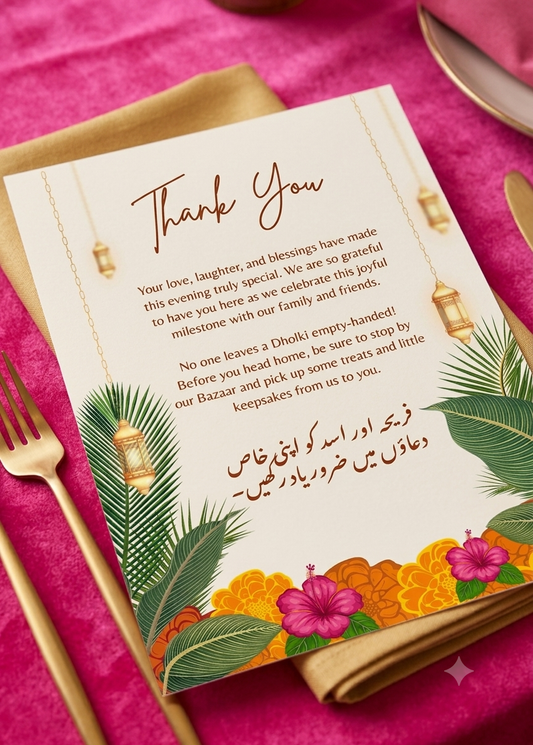 Thank You
Your love, laughter, and blessings have made
this evening truly special. We are so grateful
to have you here as we celebrate this joyful
milestone with our family and friends.
No one leaves a Dholki empty-handed!
Before you head home, be sure to stop by
our Bazaar and pick up some treats and little
keepsakes from us to you.
فریحہ اور اسد کو اپنی خاص
دعاؤں میں ضرور یاد رکھیں۔